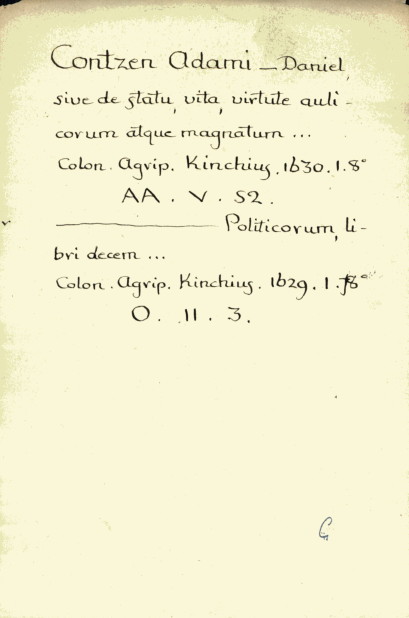 Contzen Adami — Daniel,
sive de statu, vita, virtute auli-
corum atque magnatum ...
Colon. Agrip. Kinchius. 1630. 1. 8°
AA. V. 52.
——— Politicorum, li-
bri decem ...
Colon. Agrip. Kinchius. 1629. 1. 8°
O. 11. 3.